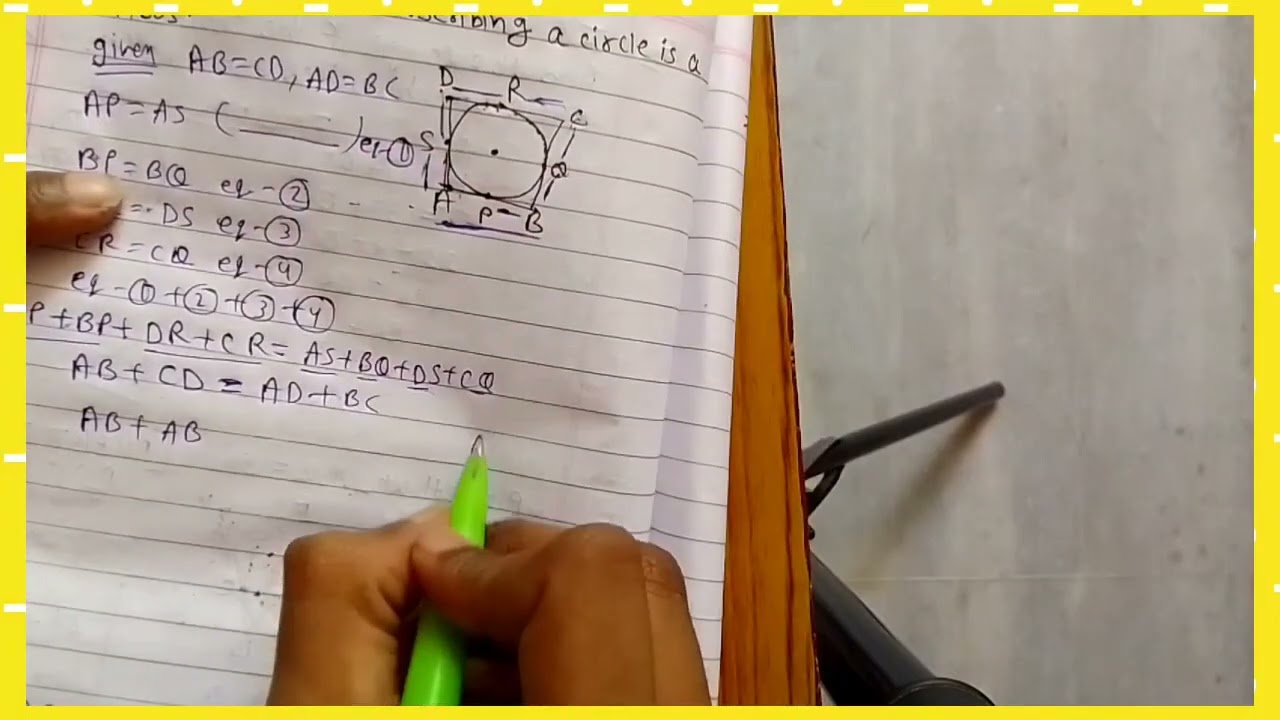 a circle is a
given AB=CD, AD=BC
AP=AS ( ——— ) eq-①
BP=BQ eq-②
=DS eq-③
CR=CQ eq-④
eq-①+②+③+④
P+BP+DR+CR=AS+BQ+DS+CQ
AB+CD=AD+BC
AB+AB
D R C
S Q
A P B